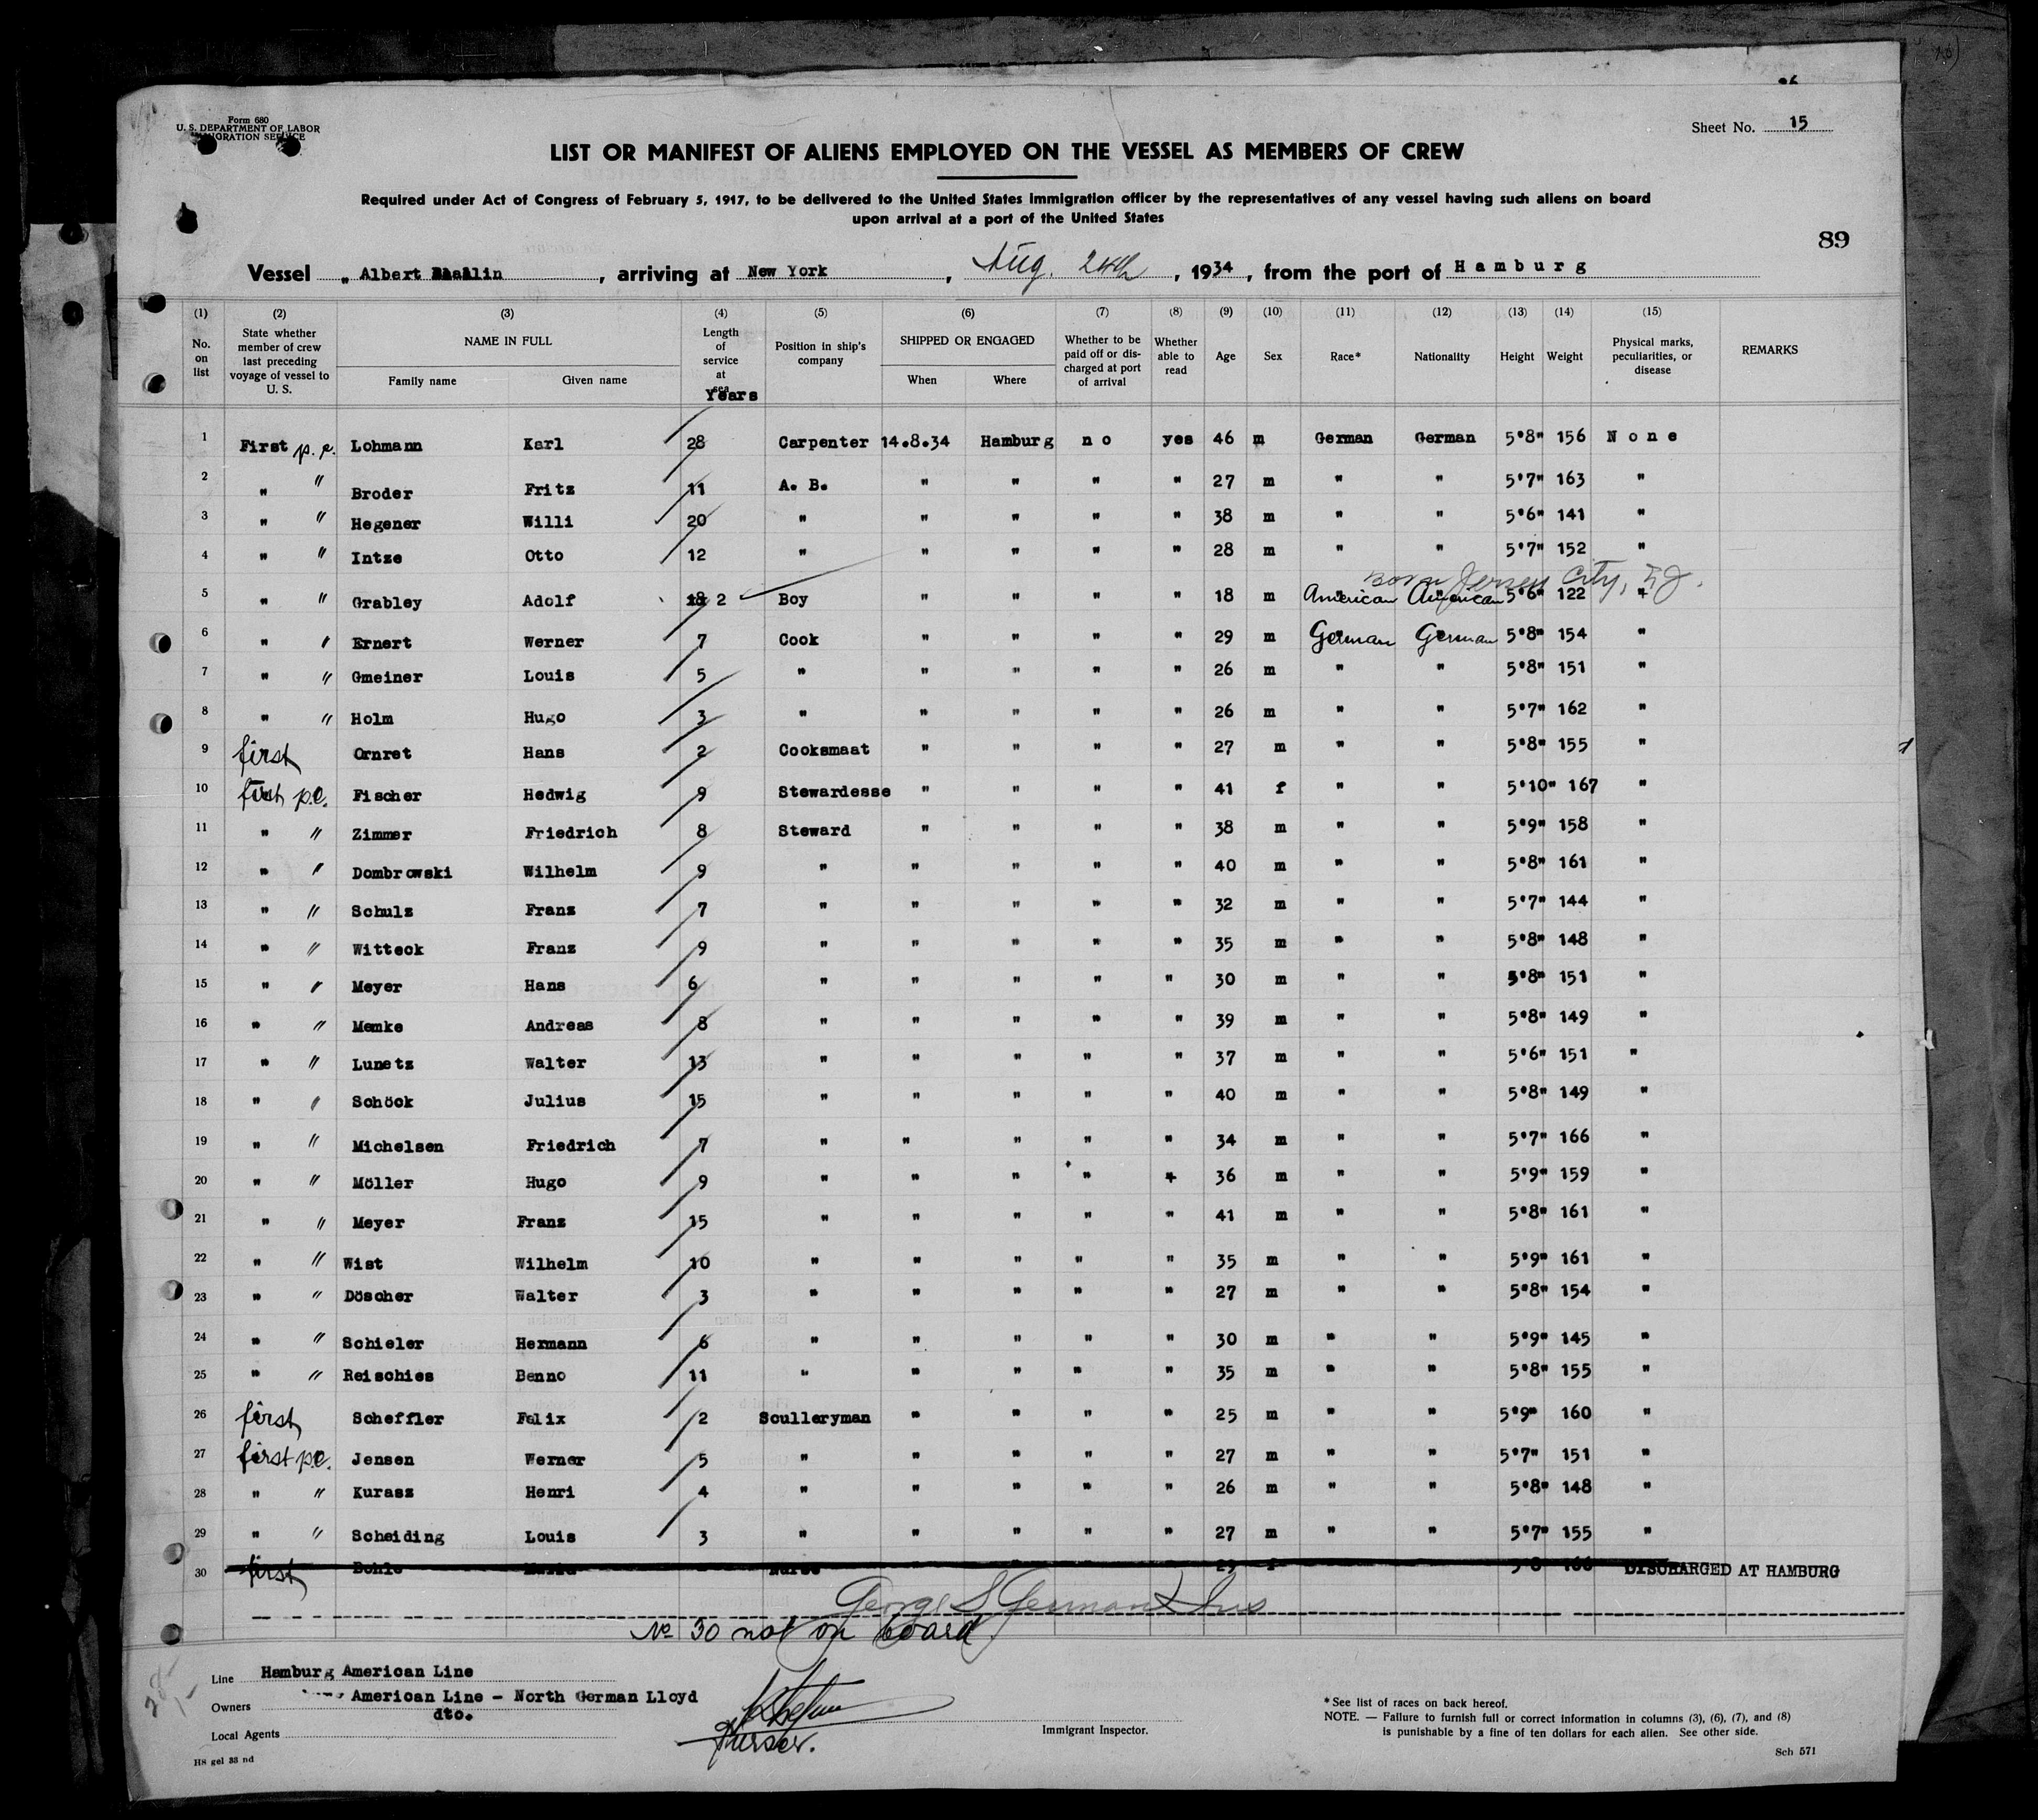 Form 680
U. S. DEPARTMENT OF LABOR
IMMIGRATION SERVICE
Sheet No. 15
LIST OR MANIFEST OF ALIENS EMPLOYED ON THE VESSEL AS MEMBERS OF CREW
Required under Act of Congress of February 5, 1917, to be delivered to the United States immigration officer by the representatives of any vessel having such aliens on board
upon arrival at a port of the United States
89
Vessel „ Albert Ballin , arriving at New York , Aug. 24th , 1934 , from the port of Hamburg
(1) (2) (3) (4) (5) (6) (7) (8) (9) (10) (11) (12) (13) (14) (15)
No. on list State whether member of crew last preceding voyage of vessel to U. S. NAME IN FULL Family name Given name Length of service at sea Years Position in ship's company SHIPPED OR ENGAGED When Where Whether to be paid off or discharged at port of arrival Whether able to read Age Sex Race* Nationality Height Weight Physical marks, peculiarities, or disease REMARKS
1 First p.e. Lohmann Karl 28 Carpenter 14.8.34 Hamburg no yes 46 m German German 5'8" 156 None
2 " " Broder Fritz 11 A. B. " " " " 27 m " " 5'7" 163 "
3 " " Hegener Willi 20 " " " " " 38 m " " 5'6" 141 "
4 " " Intze Otto 12 " " " " " 28 m " " 5'7" 152 "
Born Jersey City, N.J.
5 " " Grabley Adolf 2 Boy " " " " 18 m American American 5'6" 122 "
6 " " Ernert Werner 7 Cook " " " " 29 m German German 5'8" 154 "
7 " " Gmeiner Louis 5 " " " " " 26 m " " 5'8" 151 "
8 " " Holm Hugo 3 " " " " " 26 m " " 5'7" 162 "
9 first Ornret Hans 2 Cooksmaat " " " " 27 m " " 5'8" 155 "
10 first p.e. Fischer Hedwig 9 Stewardesse " " " " 41 f " " 5'10" 167 "
11 " " Zimmer Friedrich 8 Steward " " " " 38 m " " 5'9" 158 "
12 " " Dombrowski Wilhelm 9 " " " " " 40 m " " 5'8" 161 "
13 " " Schulz Franz 7 " " " " " 32 m " " 5'7" 144 "
14 " " Witteck Franz 9 " " " " " 35 m " " 5'8" 148 "
15 " " Meyer Hans 6 " " " " " 30 m " " 5'8" 151 "
16 " " Memke Andreas 8 " " " " " 39 m " " 5'8" 149 "
17 " " Lunetz Walter 13 " " " " " 37 m " " 5'6" 151 "
18 " " Schöck Julius 15 " " " " " 40 m " " 5'8" 149 "
19 " " Michelsen Friedrich 7 " " " " " 34 m " " 5'7" 166 "
20 " " Möller Hugo 9 " " " " " 36 m " " 5'9" 159 "
21 " " Meyer Franz 15 " " " " " 41 m " " 5'8" 161 "
22 " " Wist Wilhelm 10 " " " " " 35 m " " 5'9" 161 "
23 " " Döscher Walter 3 " " " " " 27 m " " 5'8" 154 "
24 " " Schieler Hermann 6 " " " " " 30 m " " 5'9" 145 "
25 " " Reischies Benno 11 " " " " " 35 m " " 5'8" 155 "
26 first Scheffler Felix 2 Sculleryman " " " " 25 m " " 5'9" 160 "
27 first p.e. Jensen Werner 5 " " " " " 27 m " " 5'7" 151 "
28 " " Kurasz Henri 4 " " " " " 26 m " " 5'8" 148 "
29 " " Scheiding Louis 3 " " " " " 27 m " " 5'7" 155 "
30 first Bohle Nurse 29 f 5'8 166 DISCHARGED AT HAMBURG
No 30 not on board
Line Hamburg American Line
Owners American Line - North German Lloyd
Local Agents dto.
Purser.
Immigrant Inspector.
*See list of races on back hereof.
NOTE. — Failure to furnish full or correct information in columns (3), (6), (7), and (8)
is punishable by a fine of ten dollars for each alien. See other side.
HS gel 33 nd
Sch 571